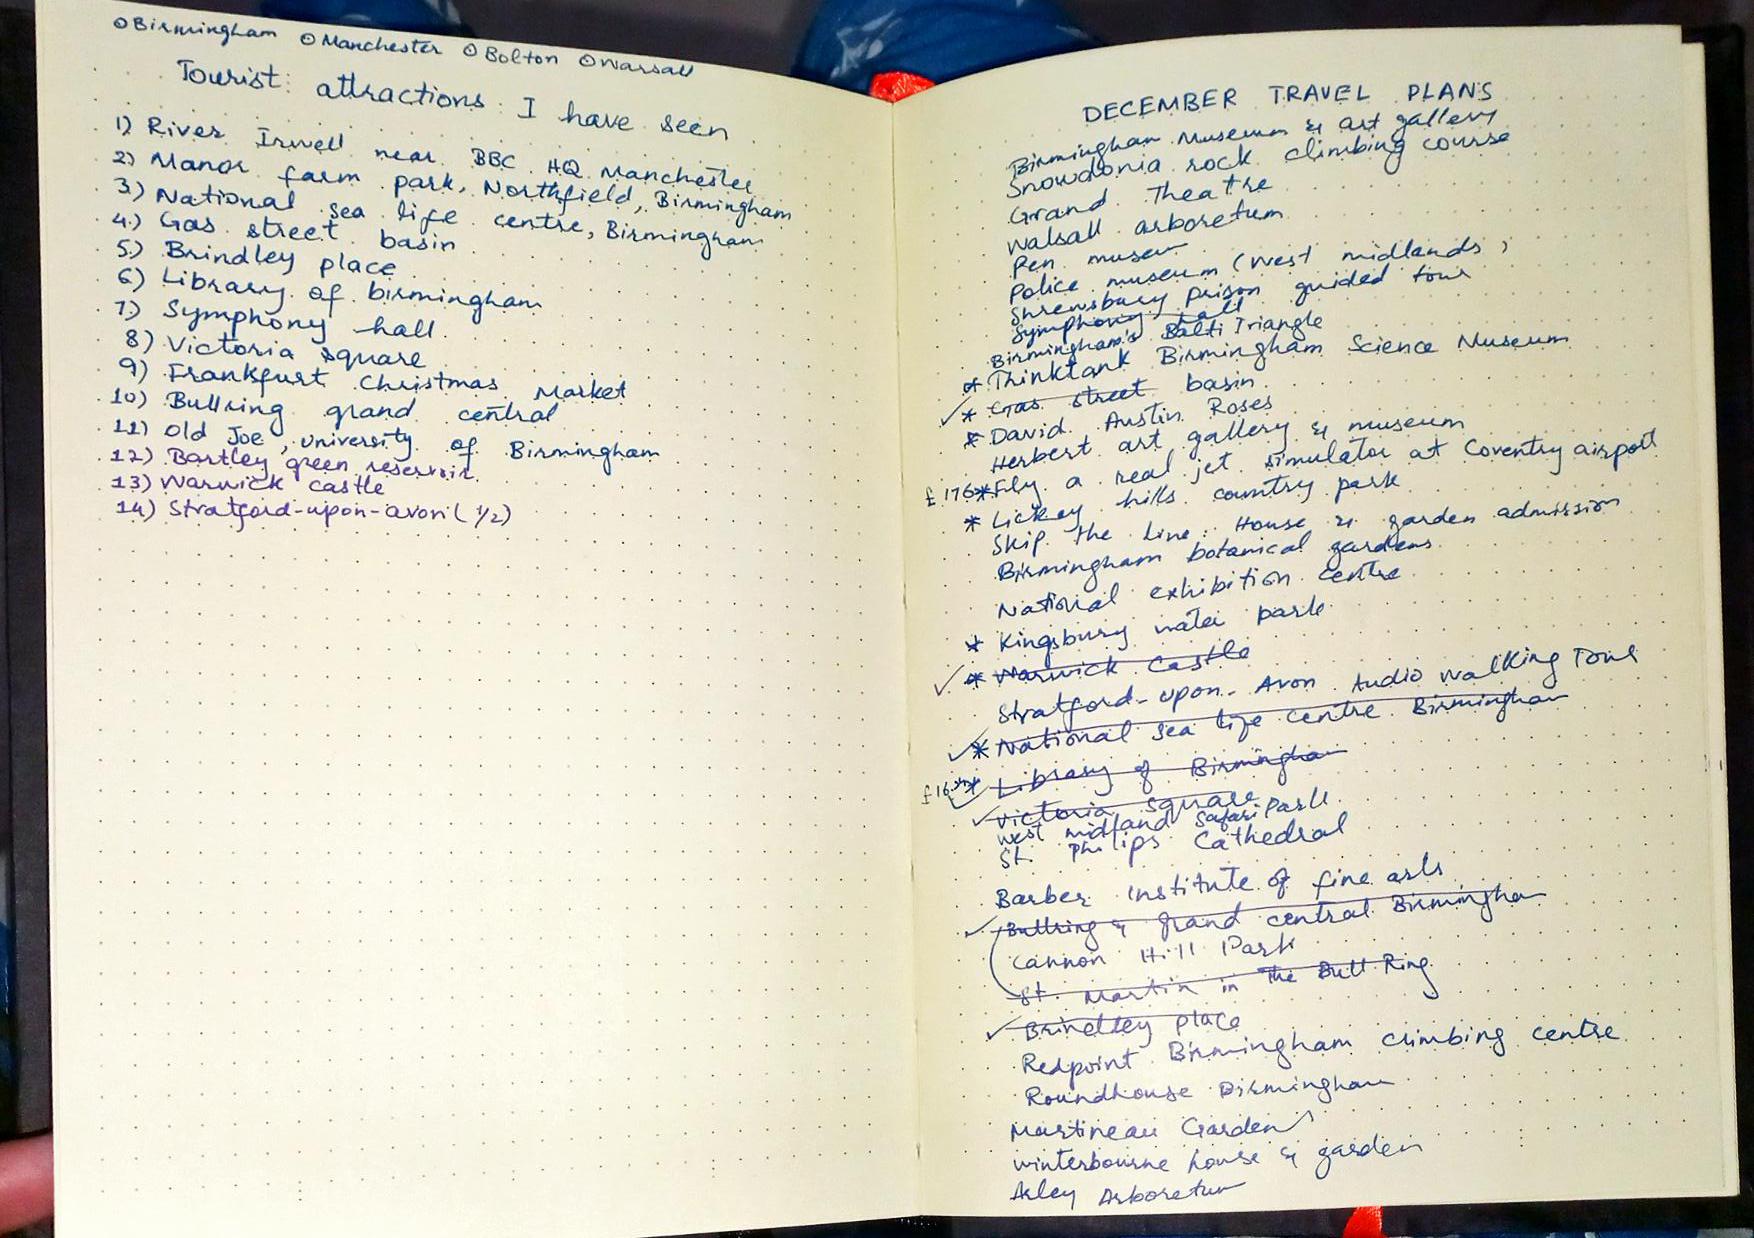 ⊙Birmingham ⊙Manchester ⊙Bolton ⊙Warsall
Tourist attractions I have seen
1) River Irwell near BBC HQ Manchester
2) Manor farm park, Northfield, Birmingham
3) National sea life centre, Birmingham
4) Gas street basin
5) Brindley place
6) Library of birmingham
7) Symphony hall
8) Victoria square
9) Frankfurt Christmas Market
10) Bullring grand central
11) Old Joe, University of Birmingham
12) Bartley green reservoir
13) Warwick castle
14) Stratford-upon-avon (1/2)
DECEMBER TRAVEL PLANS
Birmingham Museum & art gallery
Snowdonia rock climbing course
Grand Theatre
Walsall arboretum
Pen museum
Police museum (West midlands)
Shrewsbury prison guided tour
Symphony hall
Birmingham's Balti Triangle
* Thinktank Birmingham Science Museum
✓ * Gas street basin
* David Austin Roses
Herbert art gallery & museum
£176 * Fly a real jet simulator at Coventry airport
* Lickey hills country park
Skip the line: House & garden admission
Birmingham botanical gardens
National exhibition centre
* Kingsbury water park
✓ * Warwick Castle
Stratford-upon-Avon Audio Walking Tour
✓ * National sea life centre Birmingham
✓ Library of Birmingham
✓ Victoria square
West midland Safari Park
St. Philips Cathedral
Barber institute of fine arts
✓ Bullring & grand central Birmingham
Cannon Hill Park
St. Martin in The Bull Ring
✓ Brindley place
Redpoint Birmingham climbing centre
Roundhouse Birmingham
Martineau Gardens
Winterbourne house & garden
Arley Arboretum